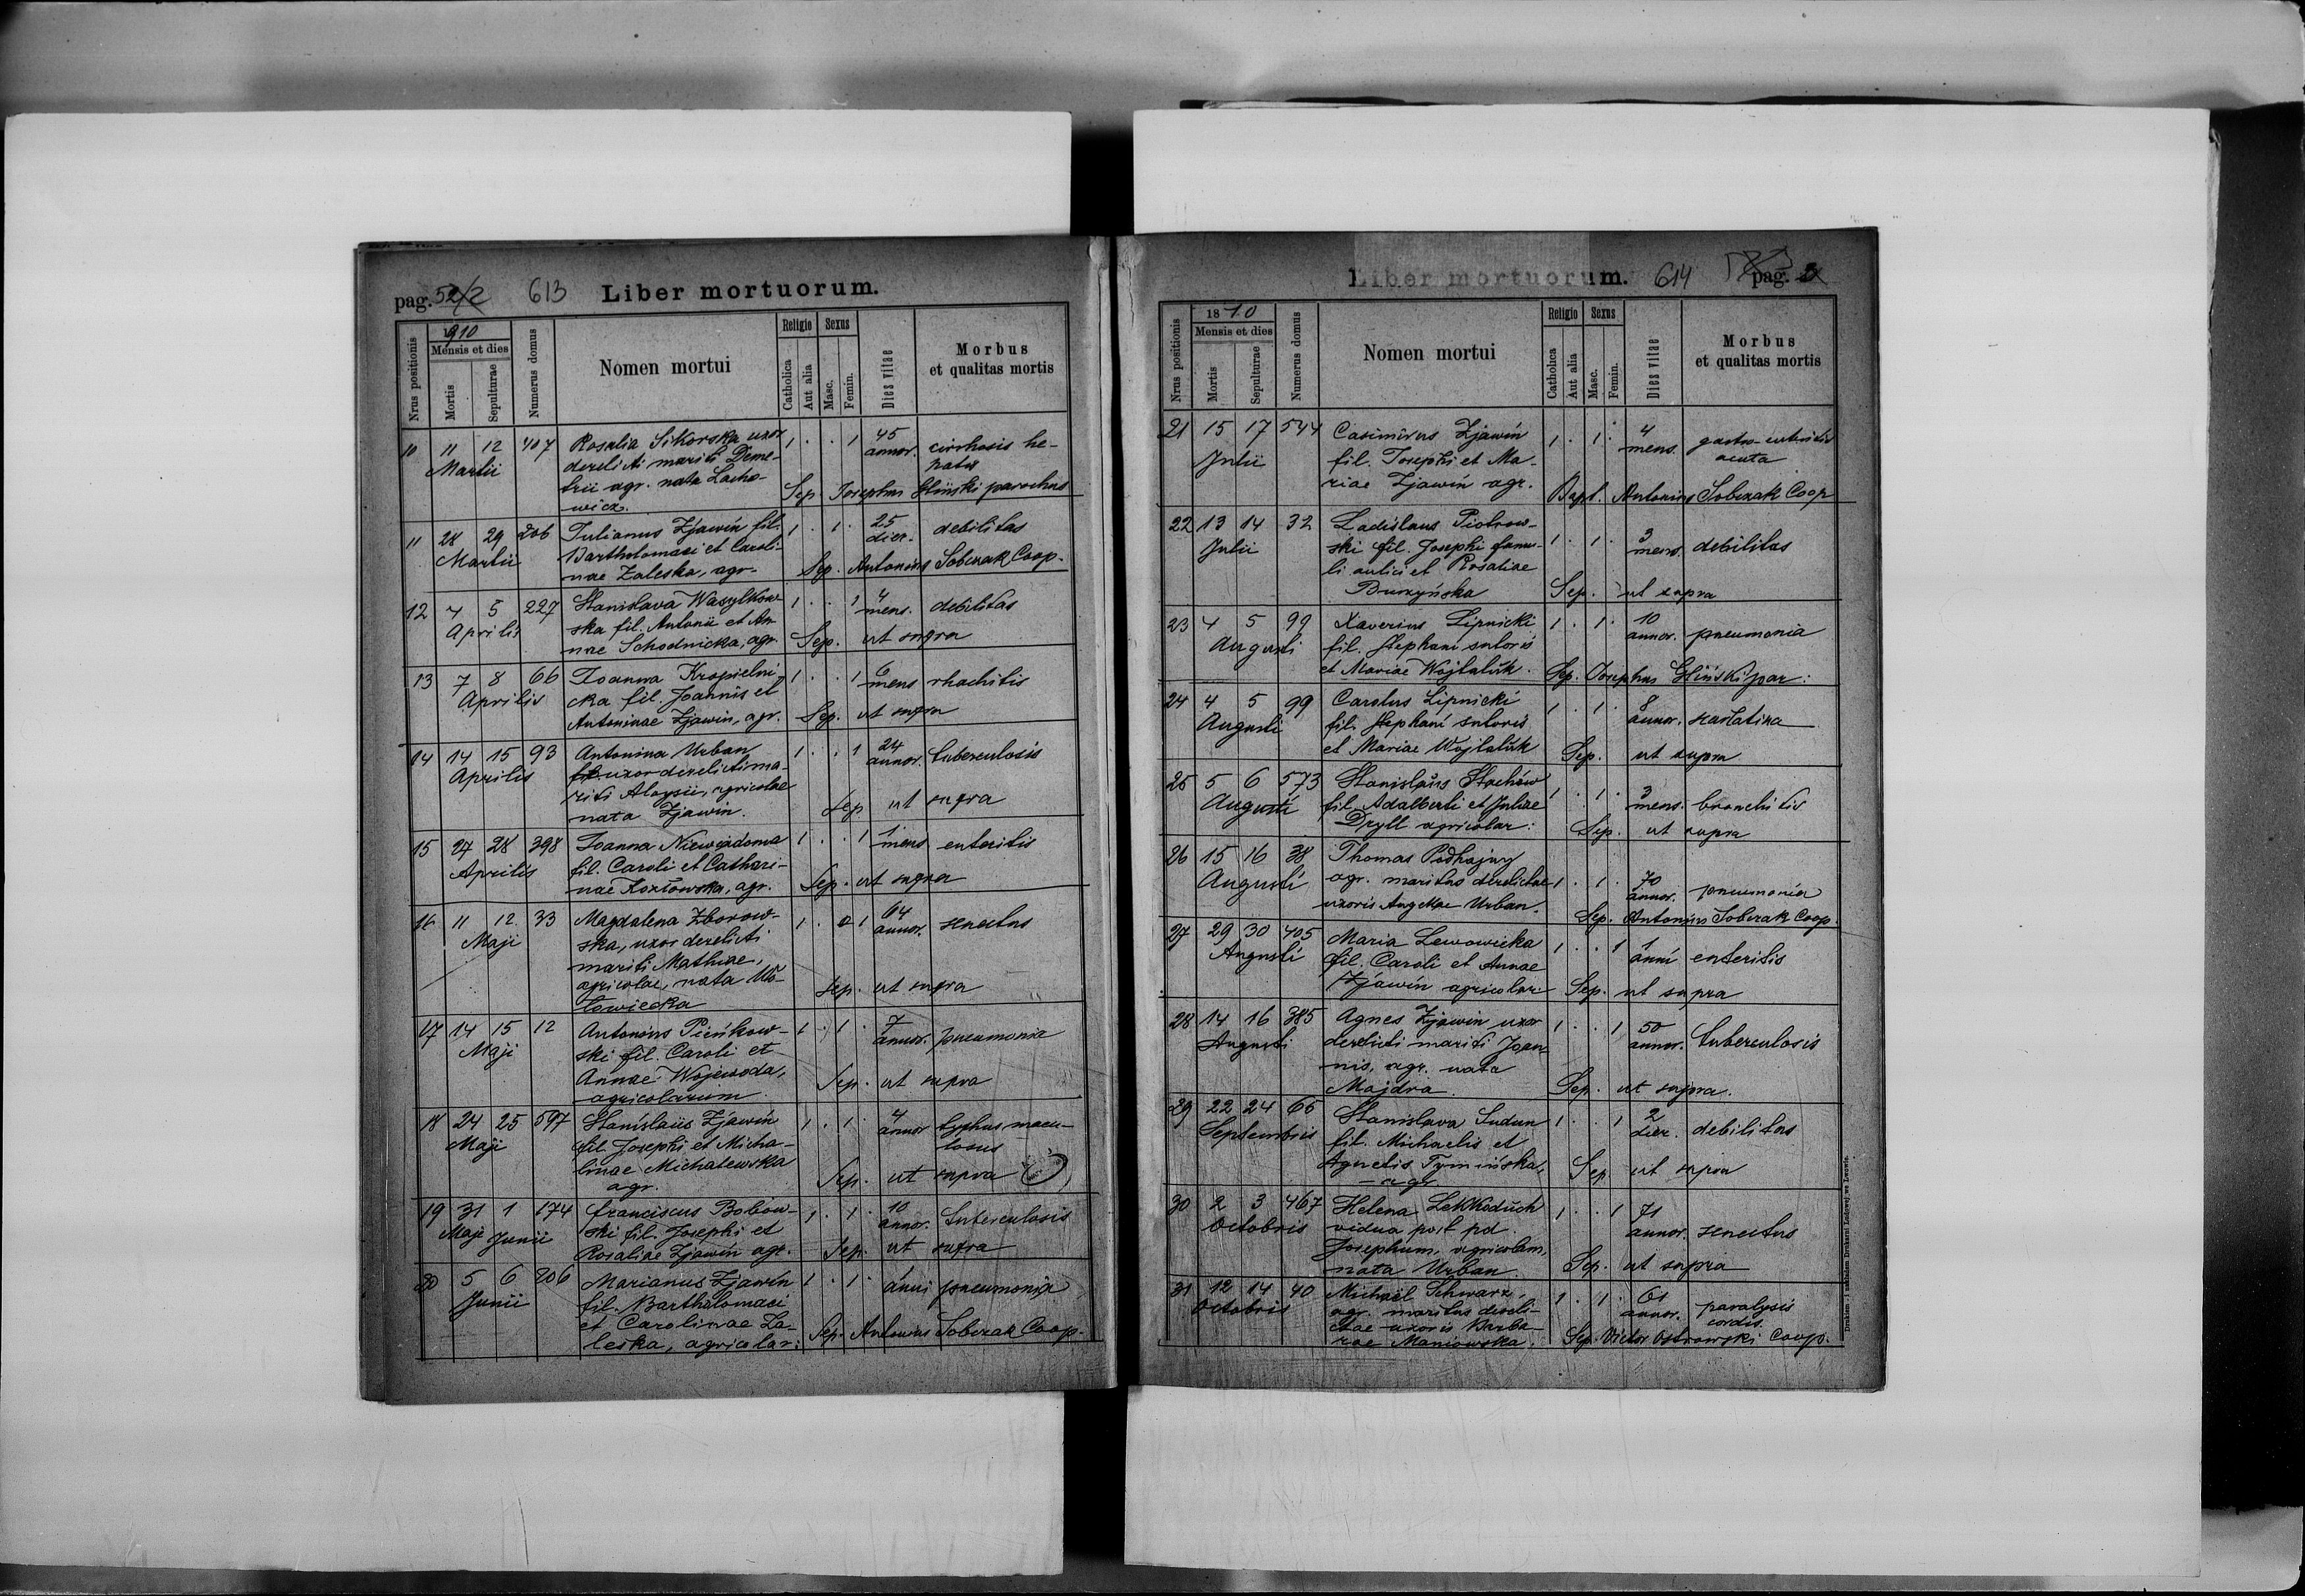 pag. 613 Liber mortuorum.
Nrus positionis
910
Mensis et dies
Mortis
Sepulturae
Numerus domus
Nomen mortui
Religio
Catholica
Aut alia
Sexus
Masc.
Femin.
Dies vitae
Morbus
et qualitas mortis
10 11 12 407 Rosalia Sikorska uxor 1 . . 1 45 annor. cirrhosis he-
Martii derelicti mariti Deme- patis
trii agr. nata Lacho- Sep. Josephus Gliński parochus
wicz.
11 28 29 206 Julianus Zjawin fil. 1 . 1 . 25 dier. debilitas
Martii Bartholomaei et Caroli-
nae Zaleska, agr. Sep. Antonius Sobczak Coop.
12 4 5 227 Stanislava Wasylkow- 1 . . 1 4 mens. debilitas
Aprilis ska fil. Antonii et An-
nae Schodnicka, agr. Sep. ut supra
13 7 8 66 Joanna Kropielni- 1 . . 1 6 mens rhachitis
Aprilis cka fil. Joannis et
Antoninae Zjawin, agr. Sep. ut supra
14 14 15 93 Antonina Urban 1 . . 1 24 annor. tuberculosis
Aprilis fil. uxor derelicti ma-
riti Aloysii, agricolae Sep ut supra
nata Zjawin.
15 27 28 398 Joanna Niewiadoma 1 . . 1 1 mens enteritis
Aprilis fil. Caroli et Cathari-
nae Kozłowska, agr. Sep. ut supra
16 11 12 33 Magdalena Zborow- 1 . 1 64 annor. senectus
Maji ska, uxor derelicti
mariti Mathiae,
agricolae, nata Sep. ut supra
17 14 15 12 Antonius Pieńkow- 1 . 1 . 7 annor. pneumonia
Maji ski fil. Caroli et
Annae Wojewoda, Sep. ut supra
agricolarum
18 24 25 597 Stanislaus Zjawin 1 . 1 . 4 annor typhus macu-
Maji fil. Josephi et Micha- losus
linae Michalewska Sep. ut supra
agr.
19 31 1 174 Franciscus Bobow- 1 . 1 . 10 annor. tuberculosis
Maji Junii ski fil. Josephi et
Rosaliae Zjawin agr. Sep. ut supra
20 5 6 206 Marianus Zjawin 1 . 1 . 1 anni pneumonia
Junii fil. Bartholomaei
et Carolinae Za- Sep. Antonius Sobczak Coop.
leska, agricolar:
Liber mortuorum. 614 pag.
Nrus positionis
1810
Mensis et dies
Mortis
Sepulturae
Numerus domus
Nomen mortui
Religio
Catholica
Aut alia
Sexus
Masc.
Femin.
Dies vitae
Morbus
et qualitas mortis
21 15 17 544 Casimirus Zjawin 1 . 1 . 4 mens. gastro-enteritis
Julii fil. Josephi et Ma- acuta
riae Zjawin agr. Bapt. Antonius Sobczak Coop
22 13 14 32 Ladislaus Piotrow- 1 . 1 . 3 mens. debilitas
Julii ski fil. Josephi famu-
li aulici et Rosaliae
Burzyńska Sep. ut supra
23 4 5 99 Xaverius Lipnicki 1 . 1 . 10 annor. pneumonia
Augusti fil. Stephani sutoris
et Mariae Wojtaluk. Sep. Josephus Gliński par:
24 4 5 99 Carolus Lipnicki 1 . 1 . 8 annor. scarlatina
Augusti fil. Stephani sutoris
et Mariae Wojtaluk Sep. ut supra
25 5 6 573 Stanislaus Stachów 1 . 1 . 3 mens. bronchitis
Augusti fil. Adalberti et Juliae
Dryll agricolar: Sep. ut supra
26 15 16 38 Thomas Podhajny
Augusti agr. maritus derelictae 1 . 1 . 70 annor. pneumonia
uxoris Angelae Urban. Sep. Antonius Sobczak Coop.
27 29 30 405 Maria Lewowicka 1 . . 1 1 anni enteritis
Augusti fil. Caroli et Annae
Zjawin agricolar: Sep. ut supra
28 14 16 385 Agnes Zjawin uxor 1 . . 1 50 annor. tuberculosis
Augusti derelicti mariti Joan-
nis, agr. nata
Majdra. Sep. ut supra.
29 22 24 66 Stanislava Sudun 1 . . 1 2 dier. debilitas
Septembris fil. Michaelis et
Agnetis Tymińska, Sep ut supra
agr.
30 2 3 467 Helena 1 . . 1 71 annor. senectus
Octobris vidua post pd.
Josephum, agricolam,
nata Urban. Sep. ut supra
31 12 14 40 Michael Schwarz, 1 . 1 . 61 annor. paralysis
Octobris agr. maritus dereli- cordis.
ctae uxoris Barba- Sep. Victor Ostrowski Coop.
rae Maniowska.
Drukiem i nakładem Drukarni Ludowej we Lwowie.